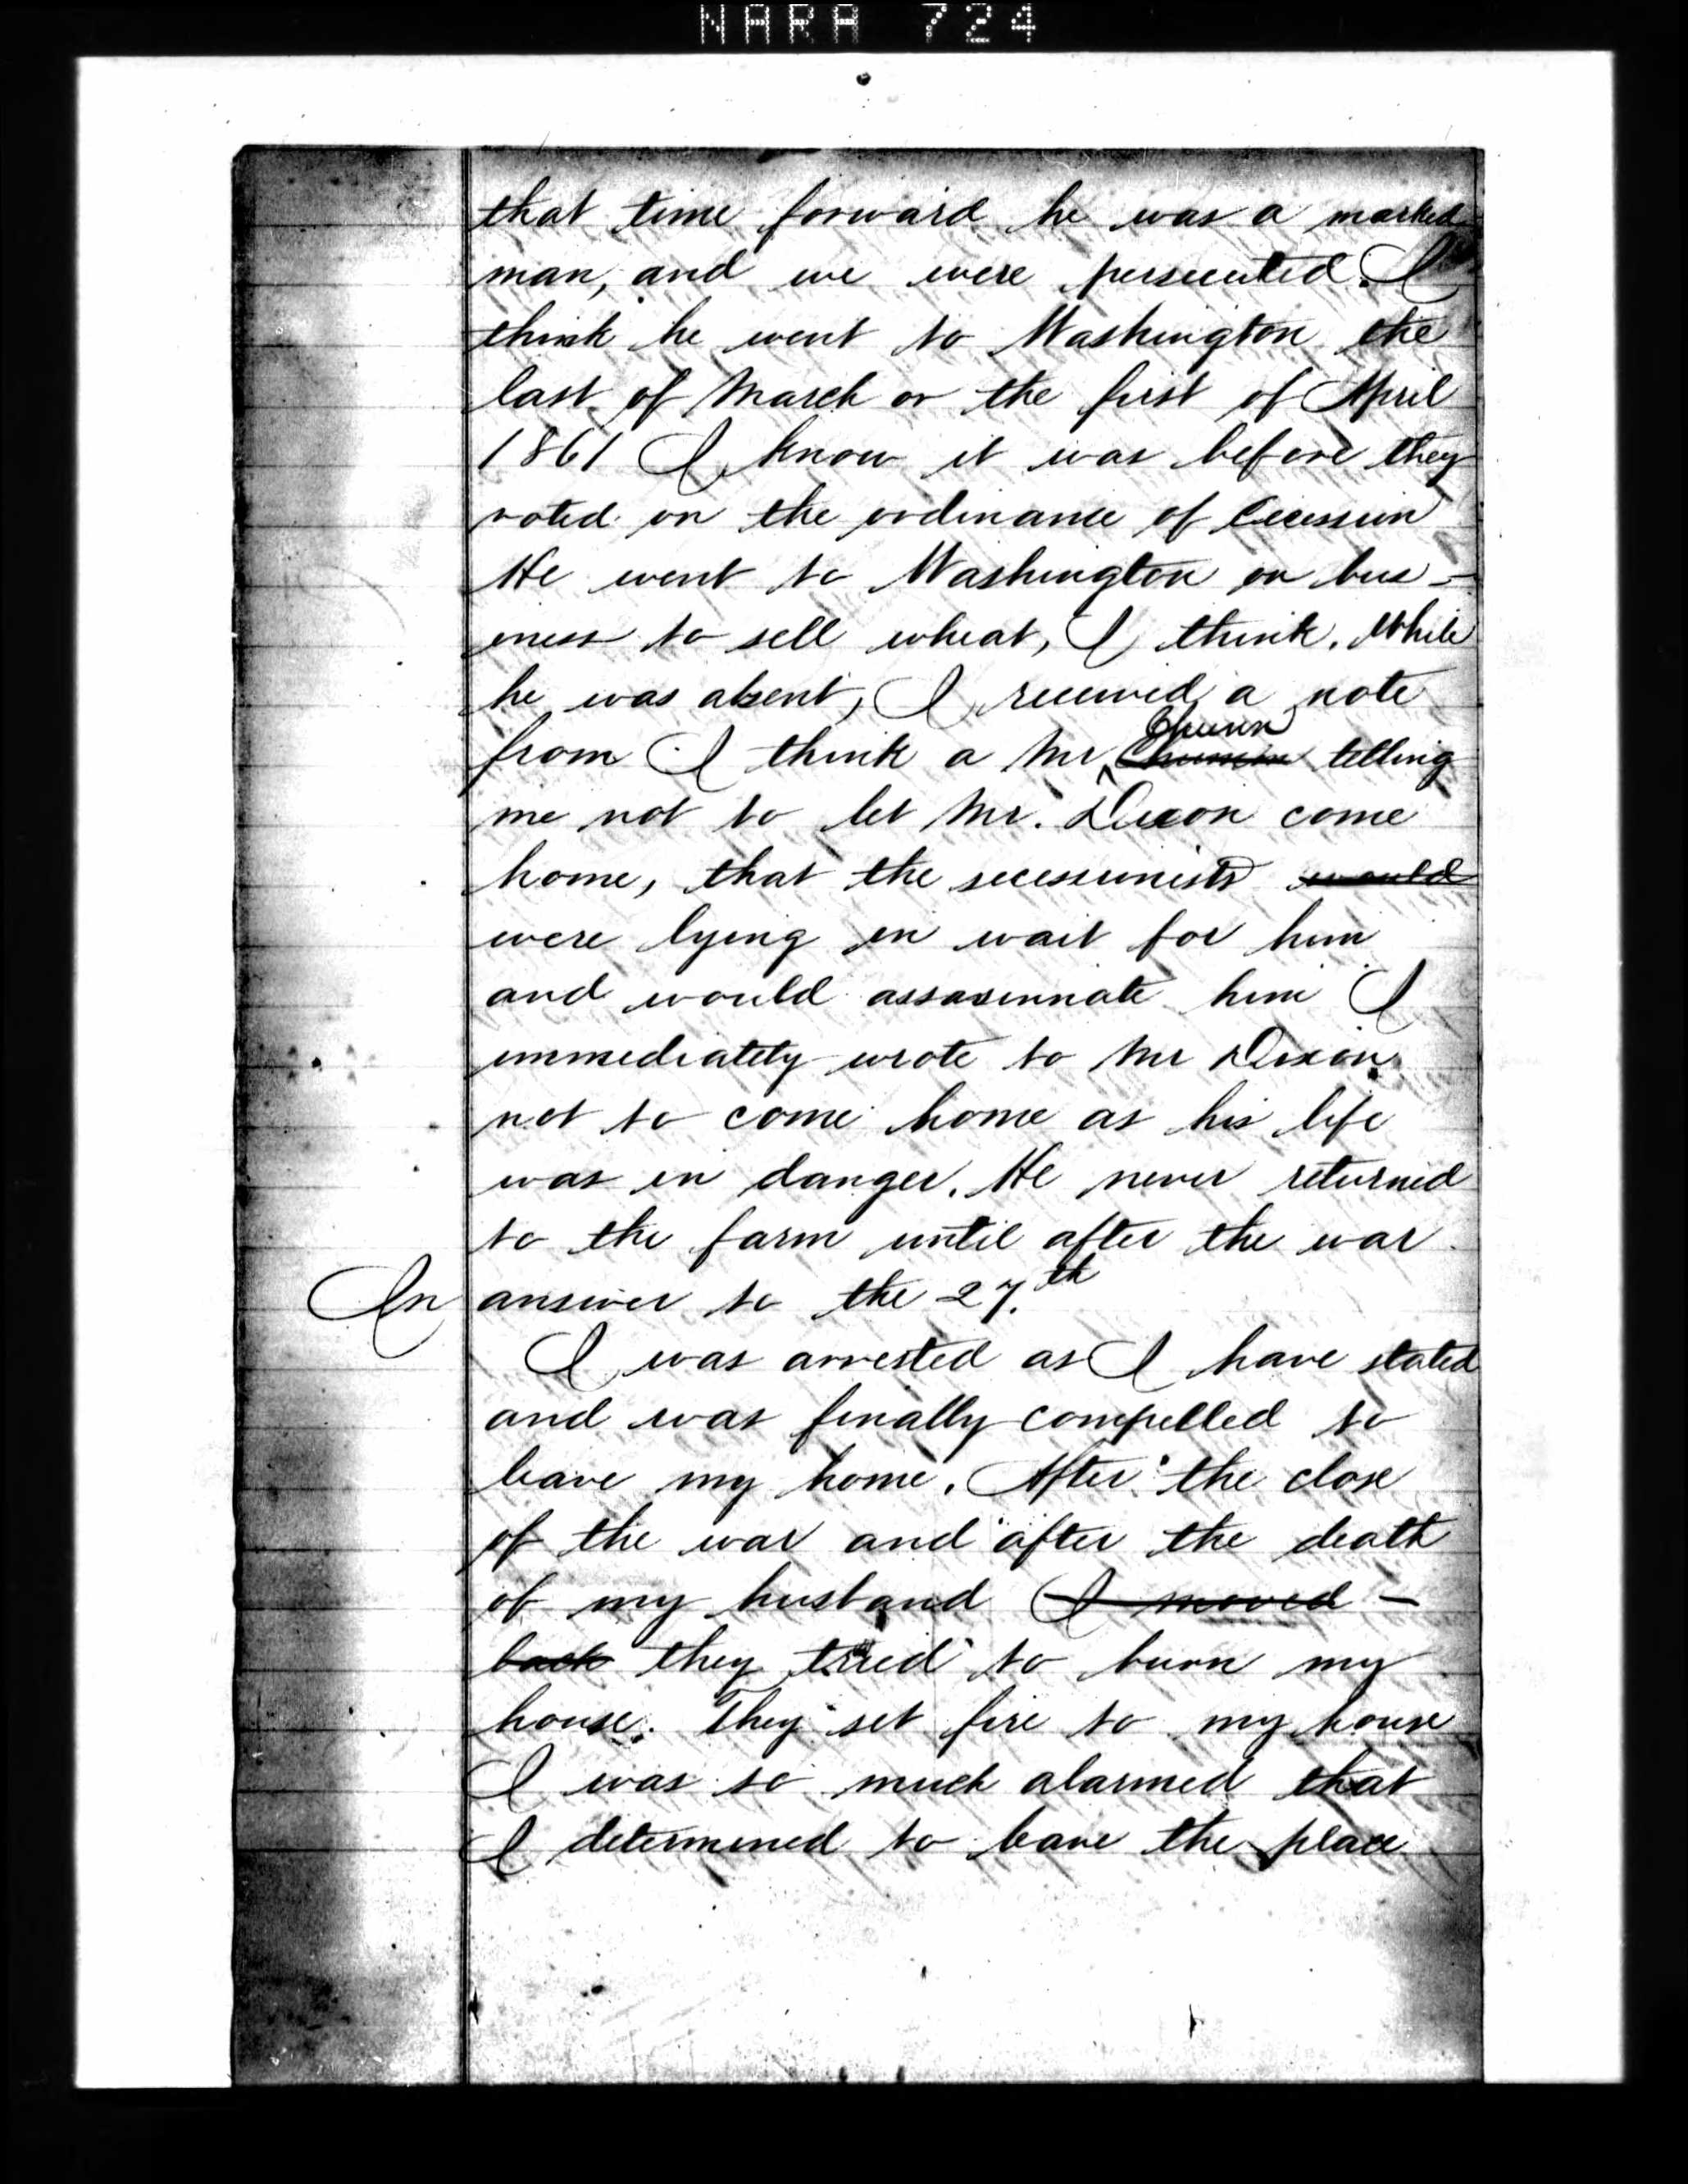 NARA 724
that time forward he was a marked
man, and we were persecuted. I
think he went to Washington the
last of March or the first of April
1861 I know it was before they
voted on the ordinance of Cecession
He went to Washington on bus-
iness to sell wheat, I think. While
he was absent, I received a note
Chunn
from I think a Mr telling
me not to let Mr. Dixon come
home, that the secessionists would
were lying in wait for him
and would assassinate him I
immediately wrote to Mr Dixon
not to come home as his life
was in danger. He never returned
to the farm until after the war
In answer to the 27.th
I was arrested as I have stated
and was finally compelled to
leave my home. After the close
of the war and after the death
of my husband I moved -
back they tried to burn my
house. They set fire to my house
I was so much alarmed that
I determined to leave the place